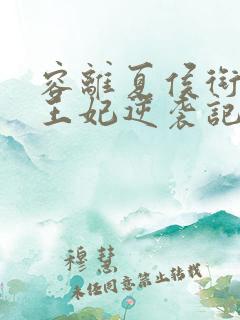 容離夏侯衍
王妃逆袭記
穆慧
未经同意禁止转载